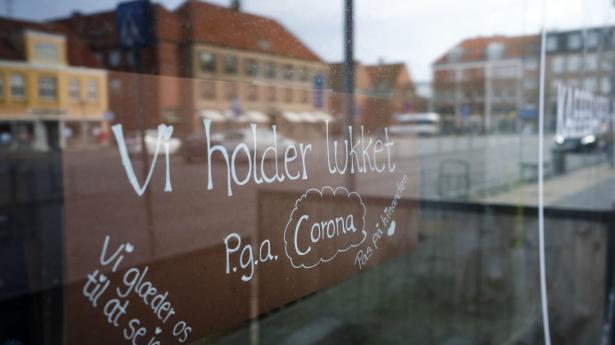 Vi holder lukket
P.g.a. Corona
Pas på hinanden
Vi glæder os
til at se